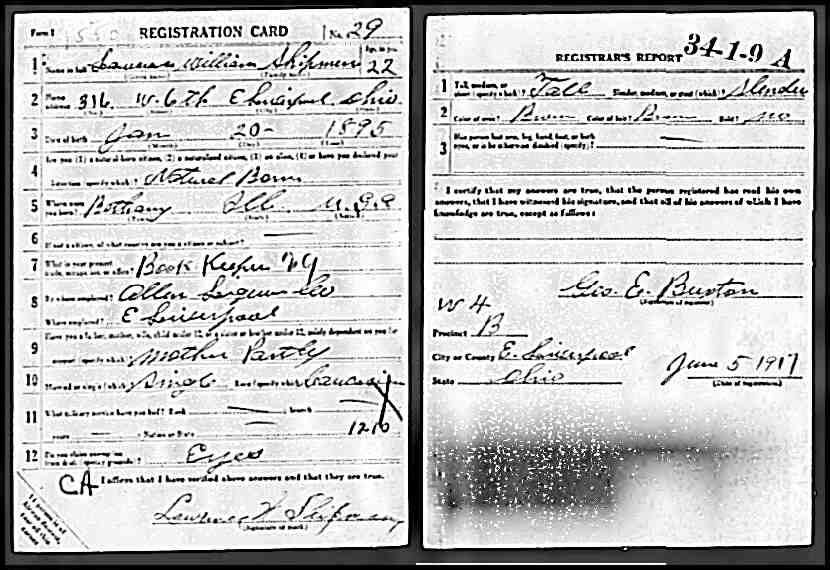 Form 1 1550 REGISTRATION CARD No. 29
1 Name in full William Shipman Age, in yrs. 22
(Given name) (Family name)
2 Home address 316 W. 6th E Liverpool Ohio
(No.) (Street) (City) (State)
3 Date of birth Jan 20- 1895
(Month) (Day) (Year)
4 Are you (1) a natural-born citizen, (2) a naturalized citizen, (3) an alien, (4) or have you declared your
intention (specify which)? Natural Born
5 Where were you born? Bethany Ill. U.S.A
(Town) (State) (Nation)
6 If not a citizen, of what country are you a citizen or subject?
7 What is your present trade, occupation, or office? Book Keeper
8 By whom employed? Allen Co
Where employed? E Liverpool
9 Have you a father, mother, wife, child under 12, or a sister or brother under 12, solely dependent on you for
support (specify which)? Mother Partly
10 Married or single (which)? Single Race (specify which)? Caucasian
11 What military service have you had? Rank branch
years Nation or State 1210
12 Do you claim exemption from draft (specify grounds)? Eyes
CA I affirm that I have verified above answers and that they are true.
Lawrence W Shipman
(Signature or mark)
34-1-9 A
REGISTRAR'S REPORT
1 Tall, medium, or short (specify which)? Tall Slender, medium, or stout (which)? Slender
2 Color of eyes? Brown Color of hair? Brown Bald? no
3 Has person lost arm, leg, hand, foot, or both
eyes, or is he otherwise disabled (specify)?
I certify that my answers are true, that the person registered has read his own
answers, that I have witnessed his signature, and that all of his answers of which I have
knowledge are true, except as follows:
Geo. E. Buxton
(Signature of registrar)
W 4
Precinct B
City or County E. Liverpool
State Ohio
June 5 1917
(Date of registration)